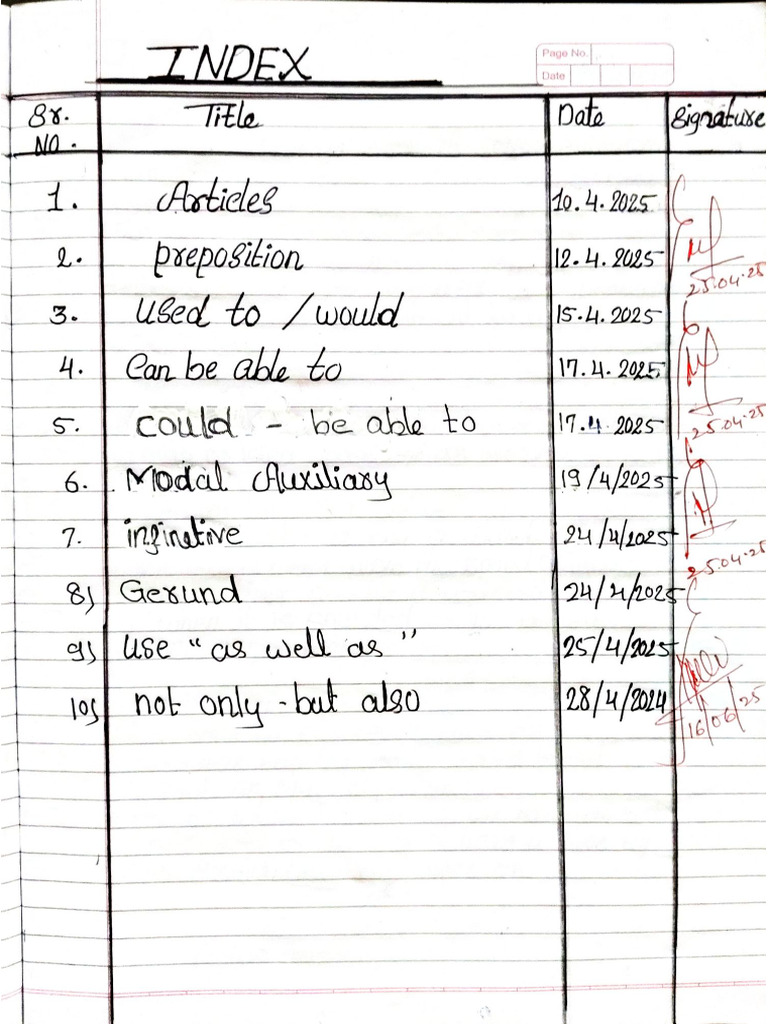 INDEX
Page No.
Date
Sr. No. Title Date Signature
1. Articles 10.4.2025
2. preposition 12.4.2025
25.04.25
3. used to / would 15.4.2025
4. Can be able to 17.4.2025
25.04.25
5. could - be able to 17.4 2025
6. Modal Auxiliary 19/4/2025
7. infinetive 24/4/2025
25.04.25
8) Gerund 24/4/2025
9) use "as well as" 25/4/2025
10) not only - but also 28/4/2024
16/06/25